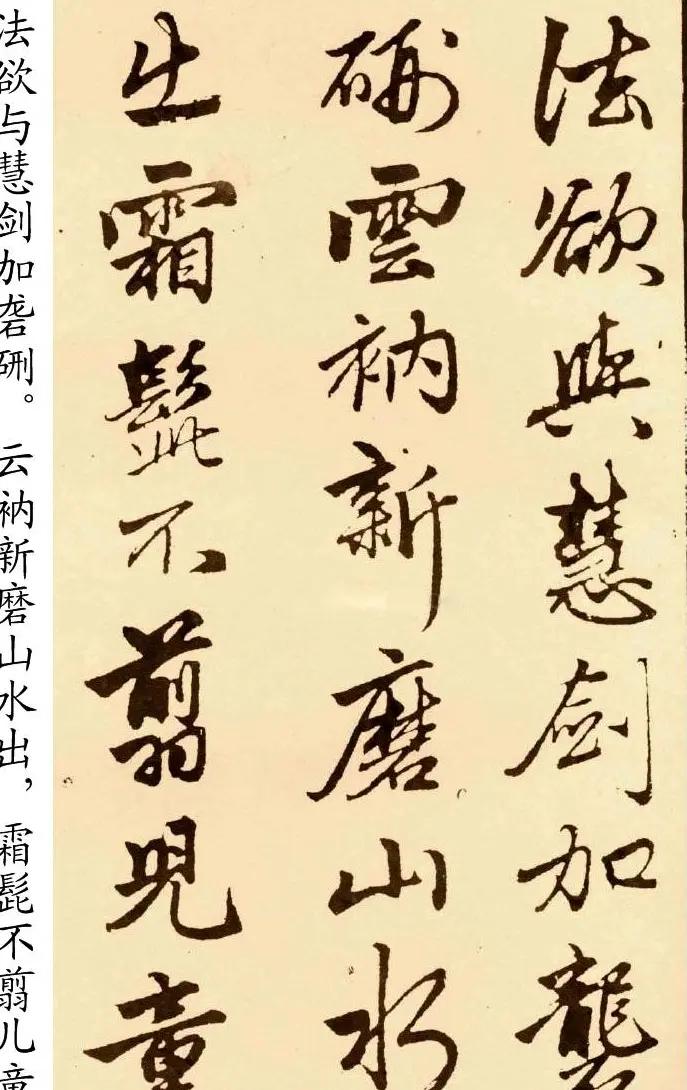 法欲與慧劍加礱
硎雲衲新磨山水
出霜髭不翦兒童
法欲与慧剑加砻硎。云衲新磨山水出，霜髭不翦儿童